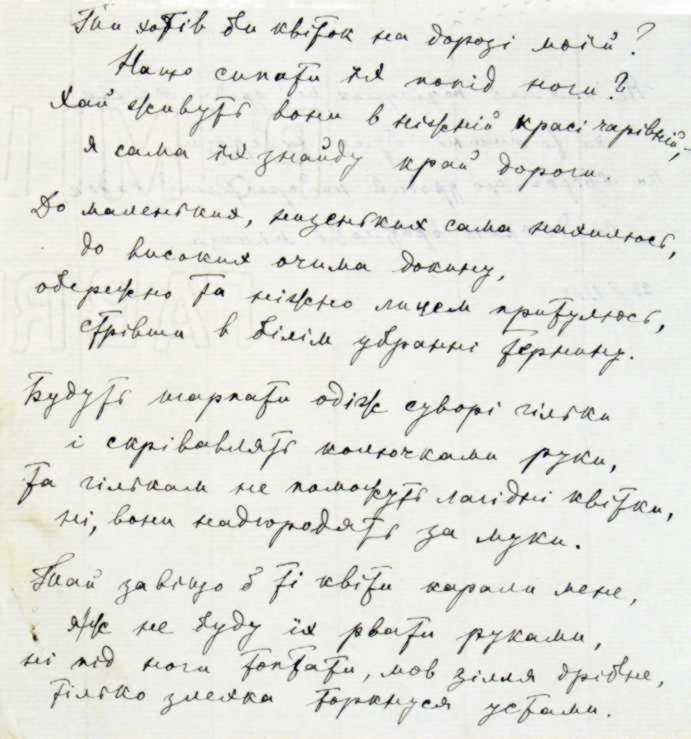 Ти хотів би квіток на дорозі моїй?
Нащо сипати їх попід ноги?
Хай живуть вони в ніжній красі чарівній, –
я сама їх знайду край дороги.
До маленьких, низеньких сама нахилюсь,
до високих очима докину,
обережно та ніжно лицем притулюсь,
стрівши в білім убранні тернину.
Будуть шарпати одіж суворі гільки
і скрівавлять колючками руки,
та гількам не поможуть лагідні квітки,
ні, вони надгородять за муки.
Тай завіщо б ті квіти карали мене,
я ж не буду їх рвати руками,
ні під ноги топтати, мов зілля дрібне,
тілько злегка торкнуся устами.